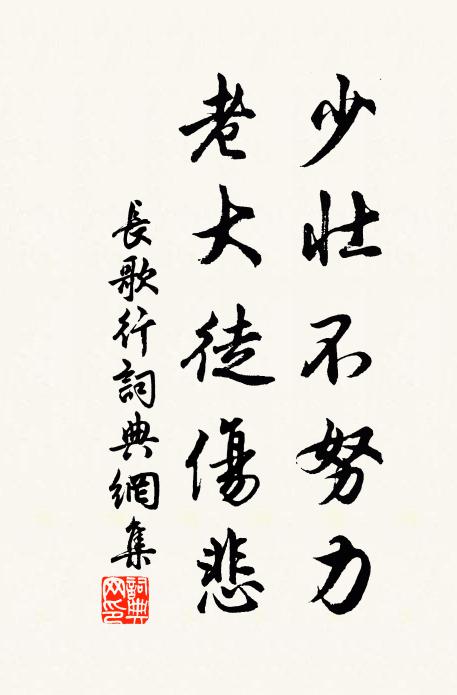 少壯不努力
老大徒傷悲
長歌行詞典網集
詞典网印